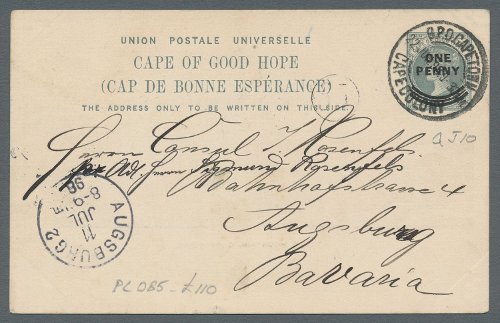 UNION POSTALE UNIVERSELLE
CAPE OF GOOD HOPE
(CAP DE BONNE ESPÉRANCE)
THE ADDRESS ONLY TO BE WRITTEN ON THIS SIDE.
G.P.O. CAPETOWN
CAPE COLONY
ONE
PENNY
QJ10
Herrn Consul S. Rosenfels
Adr. Herrn Sigmund Rosenfels
Bahnhofstrasse 4
Augsburg
Bavaria
AUGSBURG 2
11
JUL
8-9
96
PC085 - £110